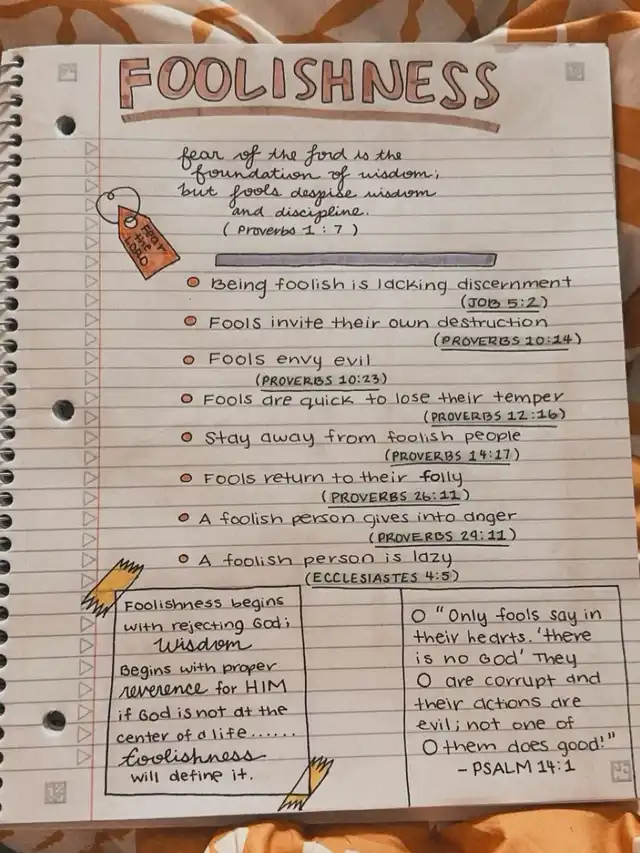 FOOLISHNESS
fear of the Lord is the
foundation of wisdom;
but fools despise wisdom
and discipline.
( Proverbs 1 : 7 )
Fear
the
LORD
Being foolish is lacking discernment
(JOB 5:2)
Fools invite their own destruction
(PROVERBS 10:14)
Fools envy evil
(PROVERBS 10:23)
Fools are quick to lose their temper
(PROVERBS 12:16)
Stay away from foolish people
(PROVERBS 14:17)
Fools return to their folly
(PROVERBS 26:11)
A foolish person gives into anger
(PROVERBS 29:11)
A foolish person is lazy
(ECCLESIASTES 4:5)
Foolishness begins
with rejecting God;
Wisdom
Begins with proper
reverence for HIM
if God is not at the
center of a life......
foolishness
will define it.
"Only fools say in
their hearts. 'there
is no God' They
are corrupt and
their actions are
evil; not one of
them does good!"
- PSALM 14:1